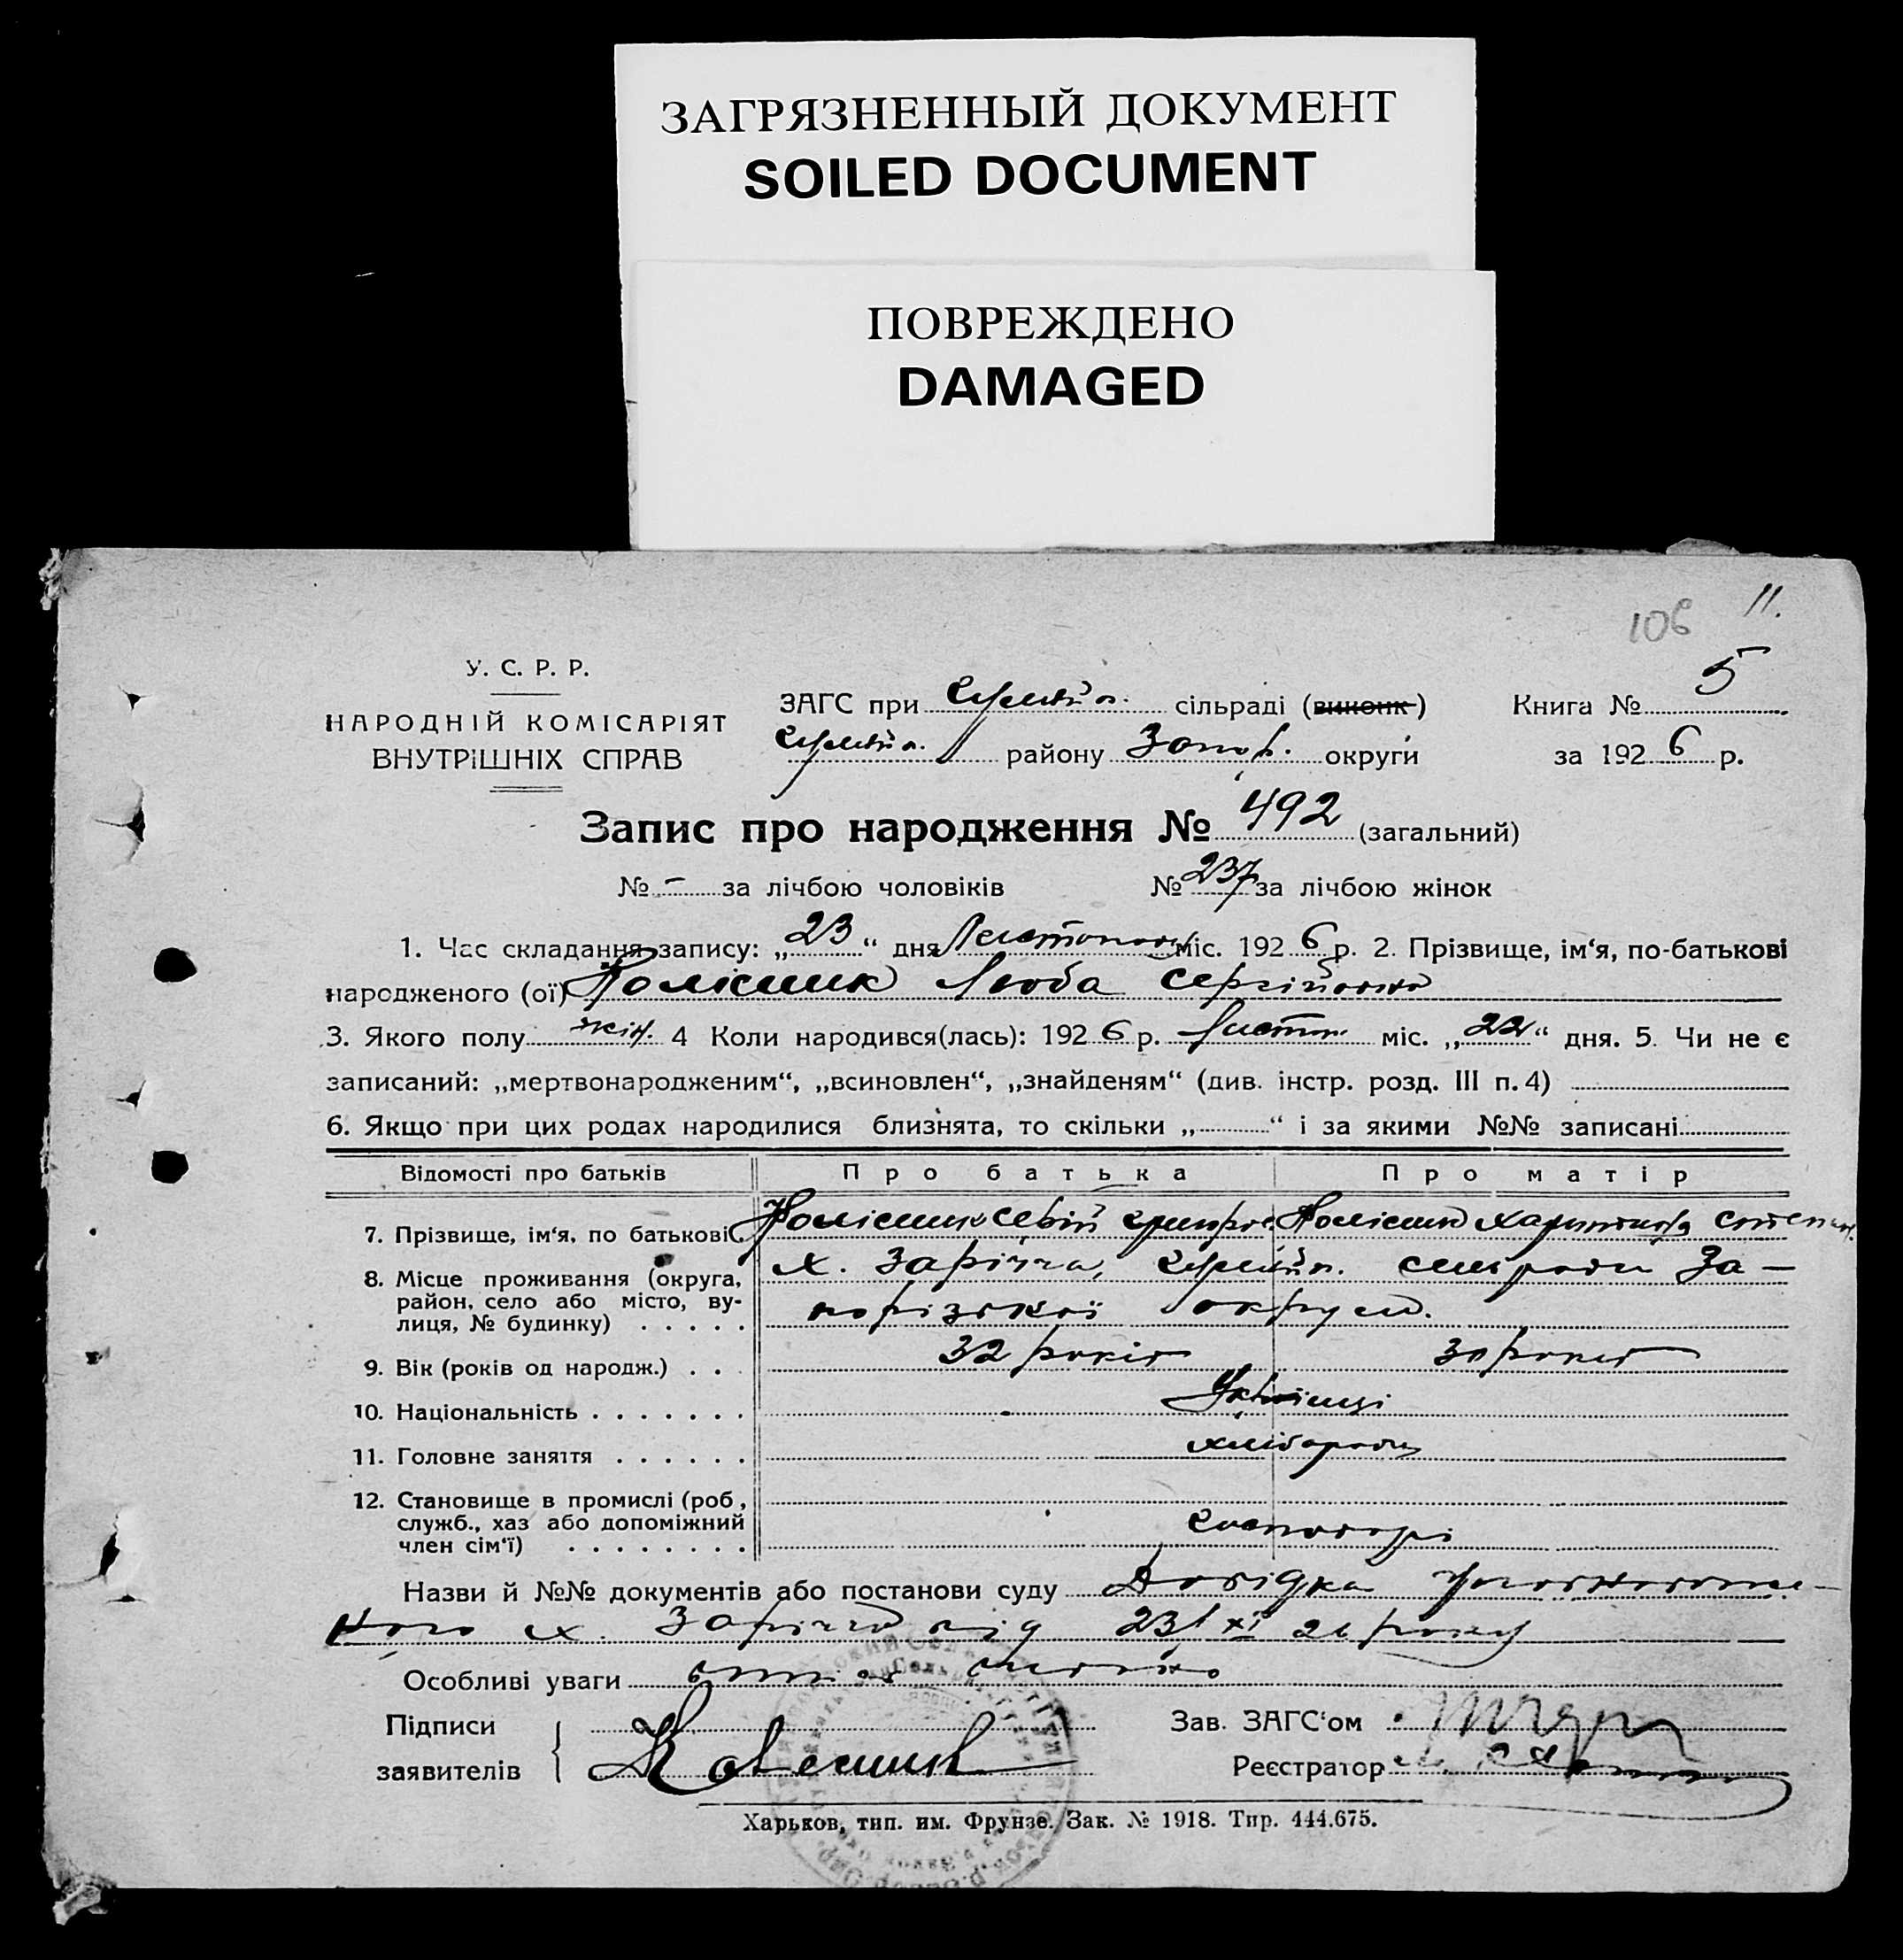 ЗАГРЯЗНЕННЫЙ ДОКУМЕНТ
SOILED DOCUMENT
ПОВРЕЖДЕНО
DAMAGED
106 11.
У. С. Р. Р.
НАРОДНІЙ КОМІСАРІЯТ
ВНУТРІШНІХ СПРАВ
ЗАГС при сільраді (виконк)
району Запор. округи
Книга № 5
за 1926 р.
Запис про народження № 492 (загальний)
№ - за лічбою чоловіків № 237 за лічбою жінок
1. Час складання запису: „23“ дня Листопаду міс. 1926 р. 2. Прізвище, ім‘я, по-батькові
народженого (ої) Колісник Люба Сергійовна
3. Якого полу жін. 4 Коли народився(лась): 1926 р. Листоп. міс. „22“ дня. 5. Чи не є
записаний: „мертвонародженим“, „всиновлен“, „знайденям“ (див. інстр. розд. III п. 4)
6. Якщо при цих родах народилися близнята, то скільки „ “ і за якими №№ записані
Відомості про батьків Про батька Про матір
7. Прізвище, ім‘я, по батькові Колісник Колісник
8. Місце проживання (округа, район, село або місто, вулиця, № будинку) х. Зарічча, сільради За-
порізької округи.
9. Вік (років од народж.) 32 років 30 років
10. Національність Українці
11. Головне заняття хлібороби
12. Становище в промислі (роб, служб., хаз або допоміжний член сім‘ї) господарі
Назви й №№ документів або постанови суду Довідка Уповноваже-
ного х. Зарічча від 23/XI 26 року
Особливі уваги
Підписи
заявителів Колесник
Зав. ЗАГС‘ом
Реєстратор
Харьков, тип. им. Фрунзе. Зак. № 1918. Тир. 444.675.